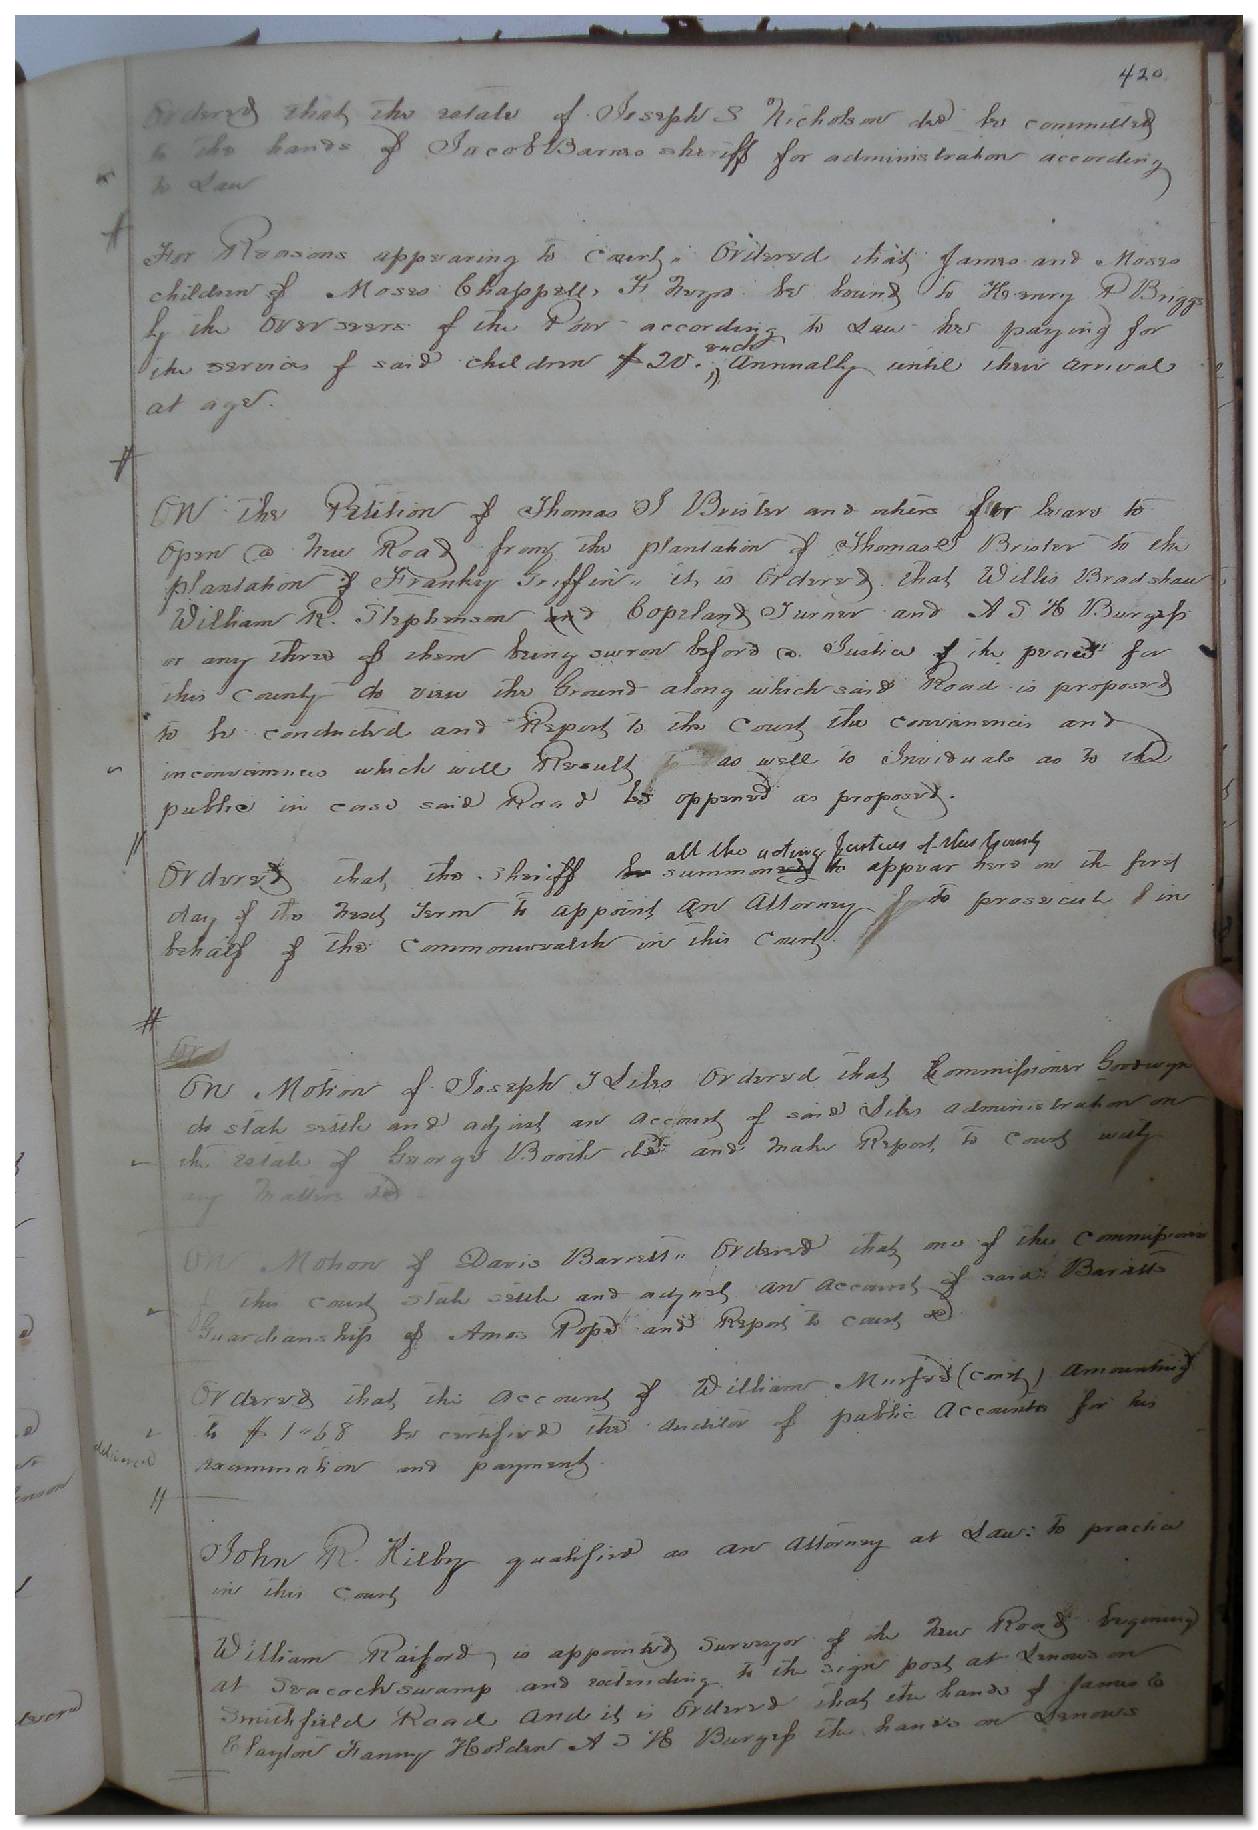 420
Ordered that the estate of Joseph S Nicholson decd be committed
to the hands of Jacob Barnes sheriff for administration according
to Law
For Reasons appearing to Court, Ordered that James and Moses
children of Moses Chappell, F Negro be bound to Henry P Briggs
by the Overseers of the Poor according to Law he paying for
each
the services of said children $20. Annually until their arrival
at age.
ON the Petition of Thomas J Brister and others for leave to
Open a New Road from the plantation of Thomas J Brister to the
plantation of Franky Griffin it is Ordered that Willis Bradshaw
William R. Stephenson and Copeland Turner and A S H Burgess
or any three of them being sworn before a Justice of the peace for
this County do view the Ground along which said Road is proposed
to be conducted and Report to the Court the conveniences and
inconveniences which will Result as well to Inviduals as to the
public in case said Road be oppened as proposed.
all the acting Justices of this County
Ordered that the sheriff summon to appear here on the first
day of the Next Term to appoint an Attorney to prosecute in
behalf of the Commonwealth in this County.
ON Motion of Joseph J Liles Ordered that Commissioner Goodwyn
do state settle and adjust an account of said Liles administration on
the estate of George Booth decd and make Report to Court with
any Matters &c
ON Motion of Davis Barrett Ordered that one of the Commissioners
of this Court state settle and adjust an account of said Baretts
Guardianship of Amos Pope and Report to court &c
Ordered that the account of William Murfee (const) amounting
to $1"68 be certified the auditor of public Accounts for his
delivered
examination and payment.
John R. Kilby qualified as an Attorney at Law to practice
in this Court
William Raiford, is appointed Surveyor of the New Road begining
at Seacock swamp and extending to the sign post at Lenows on
Smithfield Road and it is Ordered that the hands of James C
Clayton Fanny Holden A S H Burgess the hands on Lenows